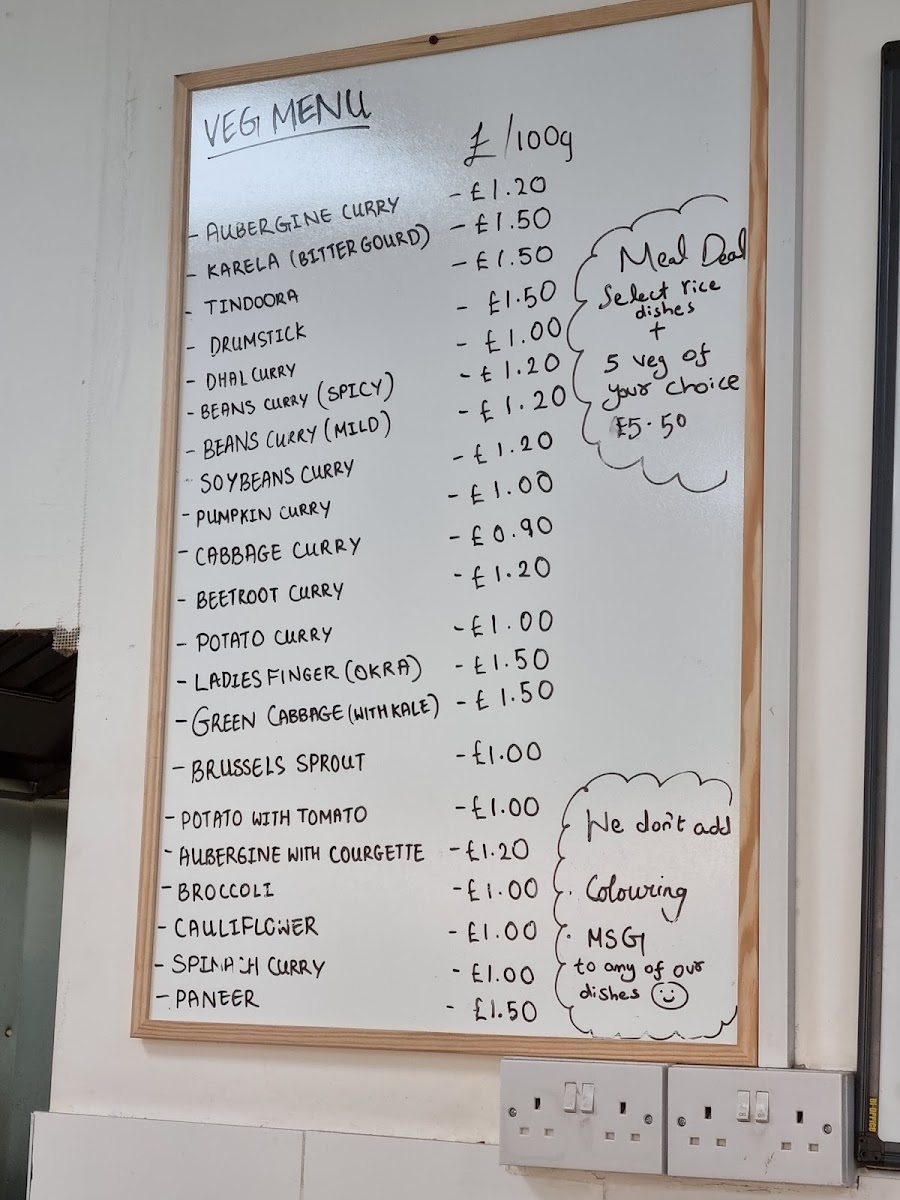 VEG MENU
£/100g
- AUBERGINE CURRY - £1.20
- KARELA (BITTER GOURD) - £1.50
- TINDOORA - £1.50
- DRUMSTICK - £1.50
- DHAL CURRY - £1.00
- BEANS CURRY (SPICY) - £1.20
- BEANS CURRY (MILD) - £1.20
- SOYBEANS CURRY - £1.20
- PUMPKIN CURRY - £1.00
- CABBAGE CURRY - £0.90
- BEETROOT CURRY - £1.20
- POTATO CURRY - £1.00
- LADIES FINGER (OKRA) - £1.50
- GREEN CABBAGE (WITH KALE) - £1.50
- BRUSSELS SPROUT - £1.00
- POTATO WITH TOMATO - £1.00
- AUBERGINE WITH COURGETTE - £1.20
- BROCCOLI - £1.00
- CAULIFLOWER - £1.00
- SPINACH CURRY - £1.00
- PANEER - £1.50
Meal Deal
Select rice
dishes
+
5 veg of
your choice
£5.50
We don't add
· Colouring
· MSG
to any of our
dishes ☺